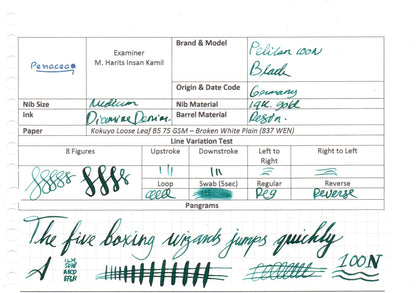 Panacea
Examiner
M. Harits Insan Kamil
Brand & Model
Pelikan 100N
Black
Origin & Date Code
Germany
Nib Size
Medium
Nib Material
14k gold
Ink
Diamine Denim
Barrel Material
Resin.
Paper
Kokuyo Loose Leaf B5 75 GSM – Broken White Plain (837 WEN)
Line Variation Test
8 Figures
Upstroke
Downstroke
Left to Right
Right to Left
Loop
Swab (5sec)
Regular
Reverse
Reg
Reverse
Pangrams
The five boxing wizards jumps quickly
100N